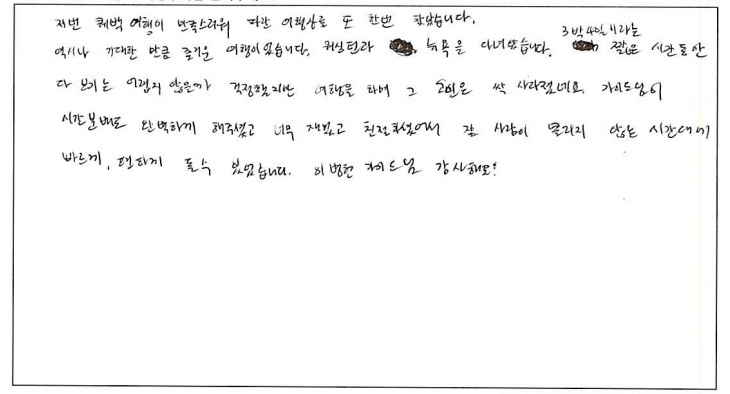 저번 퀘백 여행이 만족스러워 다른 여행상품 또 한번 왔습니다.
3박4일이라는
역시나 기대한 만큼 즐거운 여행이었습니다. 워싱턴과 뉴욕을 다녀왔습니다. 짧은 시간동안
다 보기는 어렵지 않은가 걱정했지만 여행을 하며 그 싹 사라졌네요. 가이드님이
시간분배도 완벽하게 해주셨고 너무 재밌고 친절하셨어서 잘 사람이 몰리지 않는 시간대에
빠르게, 편하게 볼수 있었습니다. 이병헌 가이드님 감사해요!